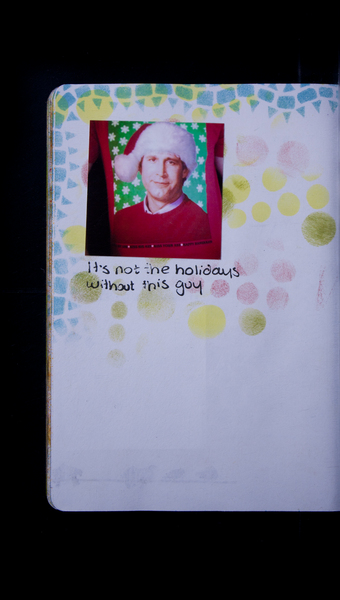 It's not the holidays
without this guy